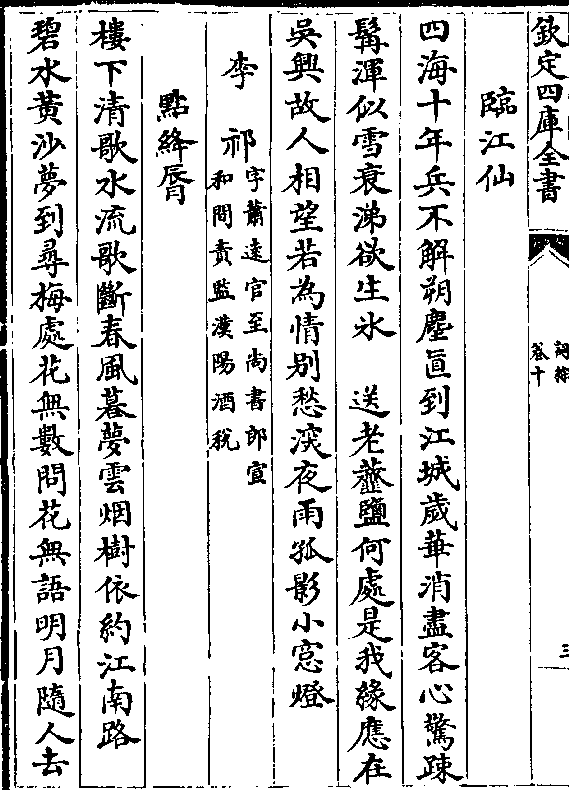 欽定四庫全書
詞綜
卷十
三
臨江仙
四海十年兵不解朔塵直到江城歲華消盡客心驚疎
髯渾似雪衰涕欲生氷　送老虀鹽何處是我緣應在
吳興故人相望若為情别愁深夜雨孤影小窓燈
李祁字蕭遠官至尚書郎宣
和間責監漢陽酒稅
點絳唇
樓下清歌水流歌斷春風暮夢雲烟樹依約江南路
碧水黄沙夢到尋梅處花無數問花無語明月隨人去